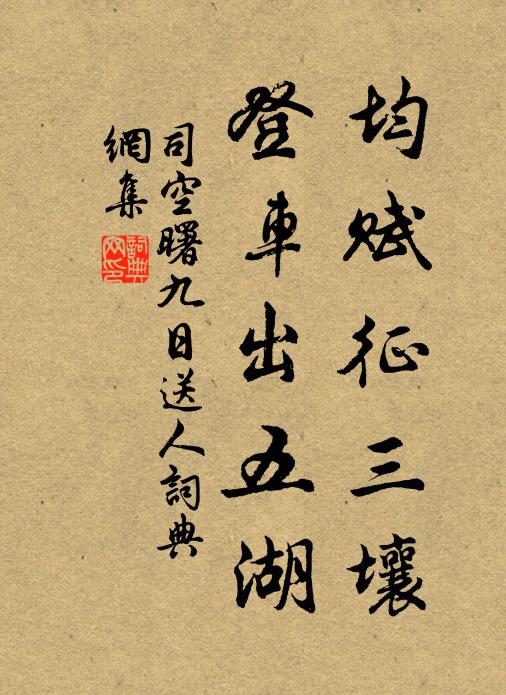 均賦征三壤
登車出五湖
司空曙九日送人詞典
網集
詞典
网印